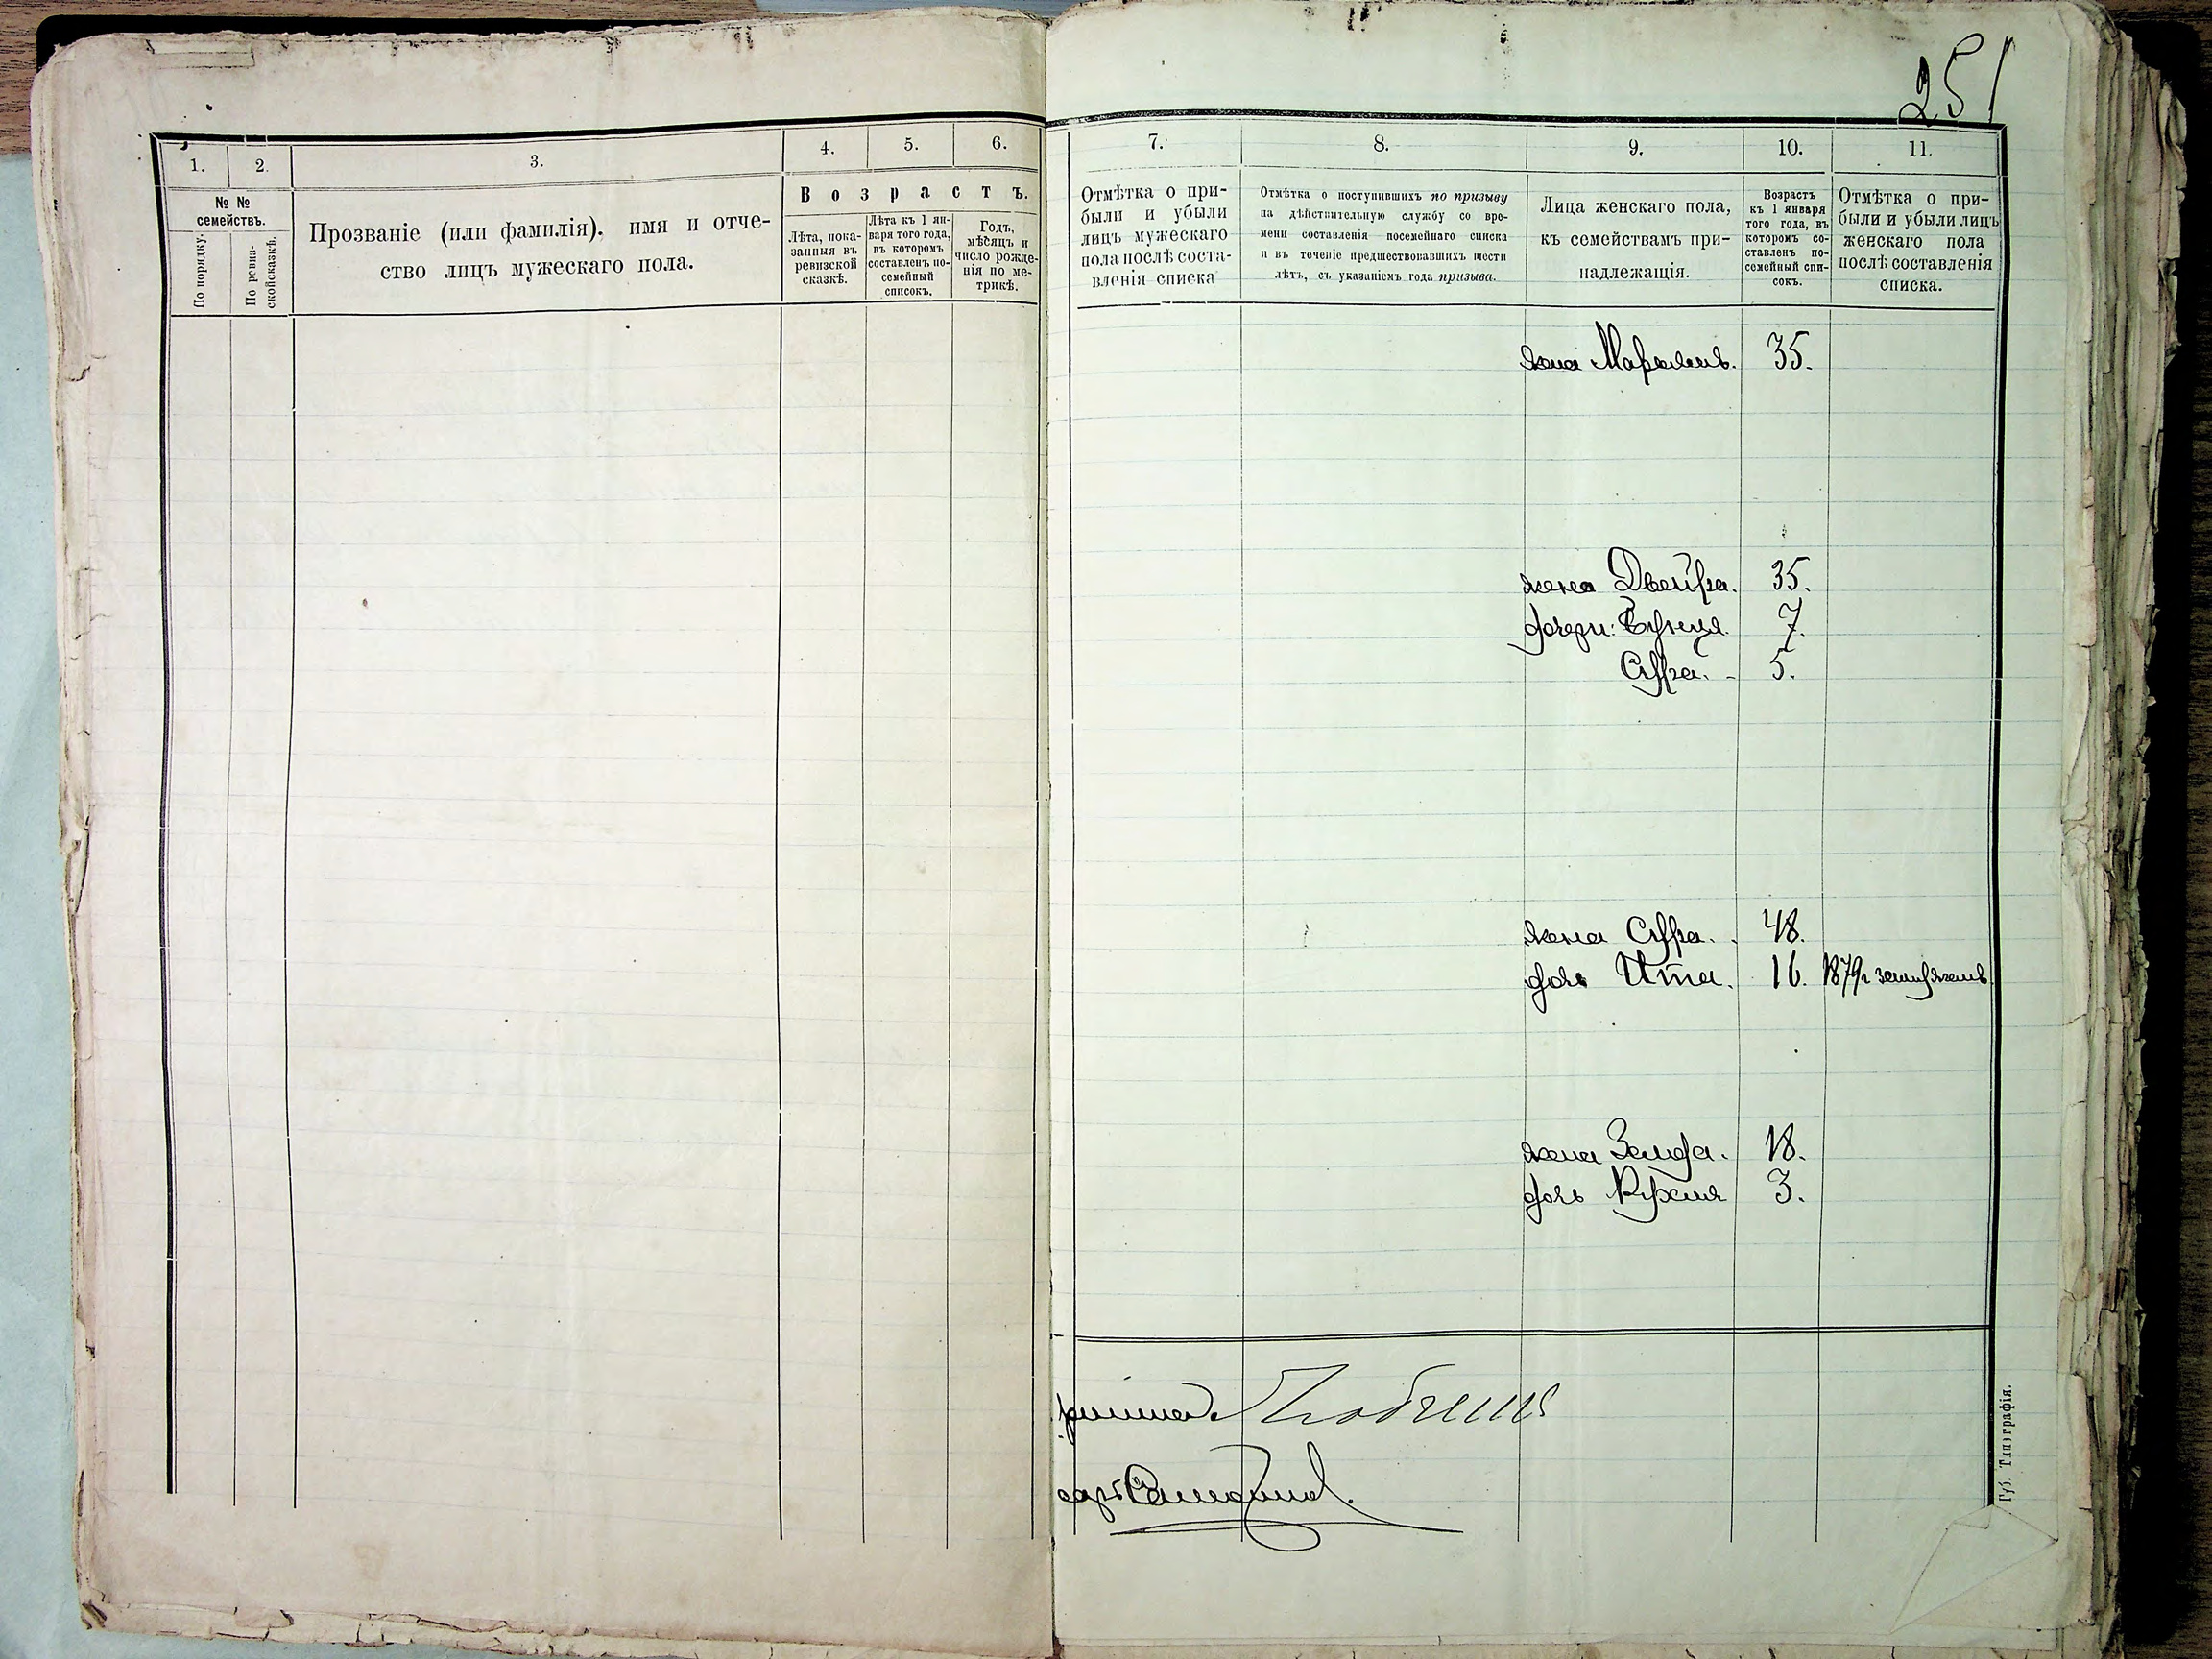 251
1.
2.
3.
4.
5.
6.
№ №
семействъ.
По порядку.
По ревиз-
ской сказкѣ.
Прозваніе (или фамилія), имя и отче-
ство лицъ мужескаго пола.
Возрастъ.
Лѣта, пока-
занныя въ
ревизской
сказкѣ.
Лѣта къ 1 ян-
варя того года,
въ которомъ
составленъ по-
семейный
списокъ.
Годъ,
мѣсяцъ и
число рожде-
нія по ме-
трикѣ.
7.
8.
9.
10.
11.
Отмѣтка о при-
были и убыли
лицъ мужескаго
пола послѣ соста-
вленія списка
Отмѣтка о поступившихъ по призыву
на дѣйствительную службу со вре-
мени составленія посемейнаго списка
и въ теченіе предшествовавшихъ шести
лѣтъ, съ указаніемъ года призыва.
Лица женскаго пола,
къ семействамъ при-
надлежащія.
Возрастъ
къ 1 января
того года, въ
которомъ со-
ставленъ по-
семейный спи-
сокъ.
Отмѣтка о при-
были и убыли лицъ
женскаго пола
послѣ составленія
списка.
жена Марьямъ. 35.
жена Двейра. 35.
дочери: 7.
Сифра. - 5.
жена Сифра. 48.
дочь Ита. 16. 1879г замужемъ
жена Зелда. 18.
дочь Рухля 3.
Губ. Типографія.